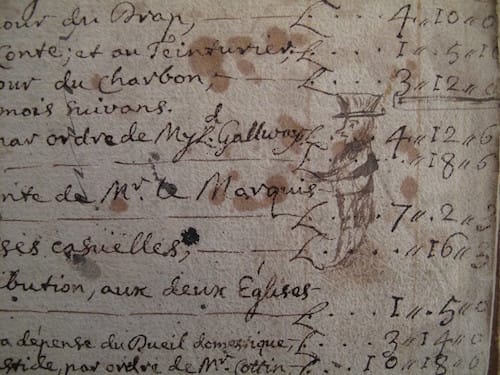 our du Drap, L... 4 ,, 10 ,, 0
Conte, et au Teinturier, L... 1 ,, 5 ,, 1
our du charbon, L... 3 ,, 12 ,, 0
mois suivans.
par ordre de My L.d Gallway, L... 4 ,, 12 ,, 6
,, 18 ,, 6
nte de M.r le Marquis L... 7 ,, 2 ,, 3
ses casüelles, L... ,, 16 ,, 3
ibution, aux deux Églises L... 1 ,, 5 ,, 0
a dépense du Dueil domestique, L... 3 ,, 14 ,, 0
stide, par ordre de M.r Cottin L... 10 ,, 18 ,, 0